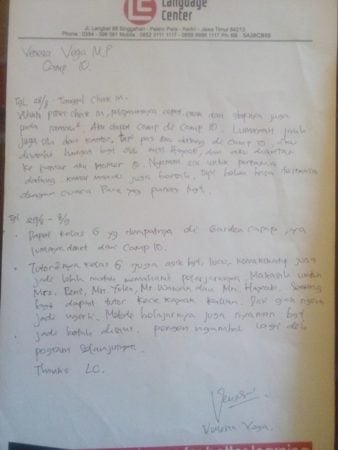 Language
Center
Jl. Langkat 88 Singgahan - Palem - Pare - Kediri - Jawa Timur 64213
Venera Vega M.P
Camp 10.
Tgl 28/8 - Tanggal Check in.
Waktu pas check in, pelayanannya cepat, dan stafnya juga
pada ramah. Aku dapat camp di Camp 10. Lumayan jauh
juga sih dari kantor, tapi pas aku datang di Camp 10, aku
disambut hangat bgt oleh miss Hayati, dan aku diantar
ke kamar aku nomor 8. Nyaman sih untuk pertama
datang, kamar mandi juga bersih, tapi belum bisa
dengan cuaca Pare yg panas bgt.
Tgl 29/8 - 8/9
Dapat kelas G yg tempatnya di Garden camp yg
lumayan dekat dari Camp 10.
Tutor2nya kelas G juga asik bgt, lucu, juga
jadi lebih mudah memahami pelajarannya. Makasih untuk
Mrs. Reni, Mr. Yolla, Mr. Wawan dan Ms. Hayati. Seneng
bgt dapat tutor kece kayak kalian. Dari gak ngerti
jadi ngerti. Metode belajarnya juga nyaman bgt
jadi betah disini. pengen ngambil lagi deh
program selanjutnya.
Thanks LC.
Venera Vega.
better learning